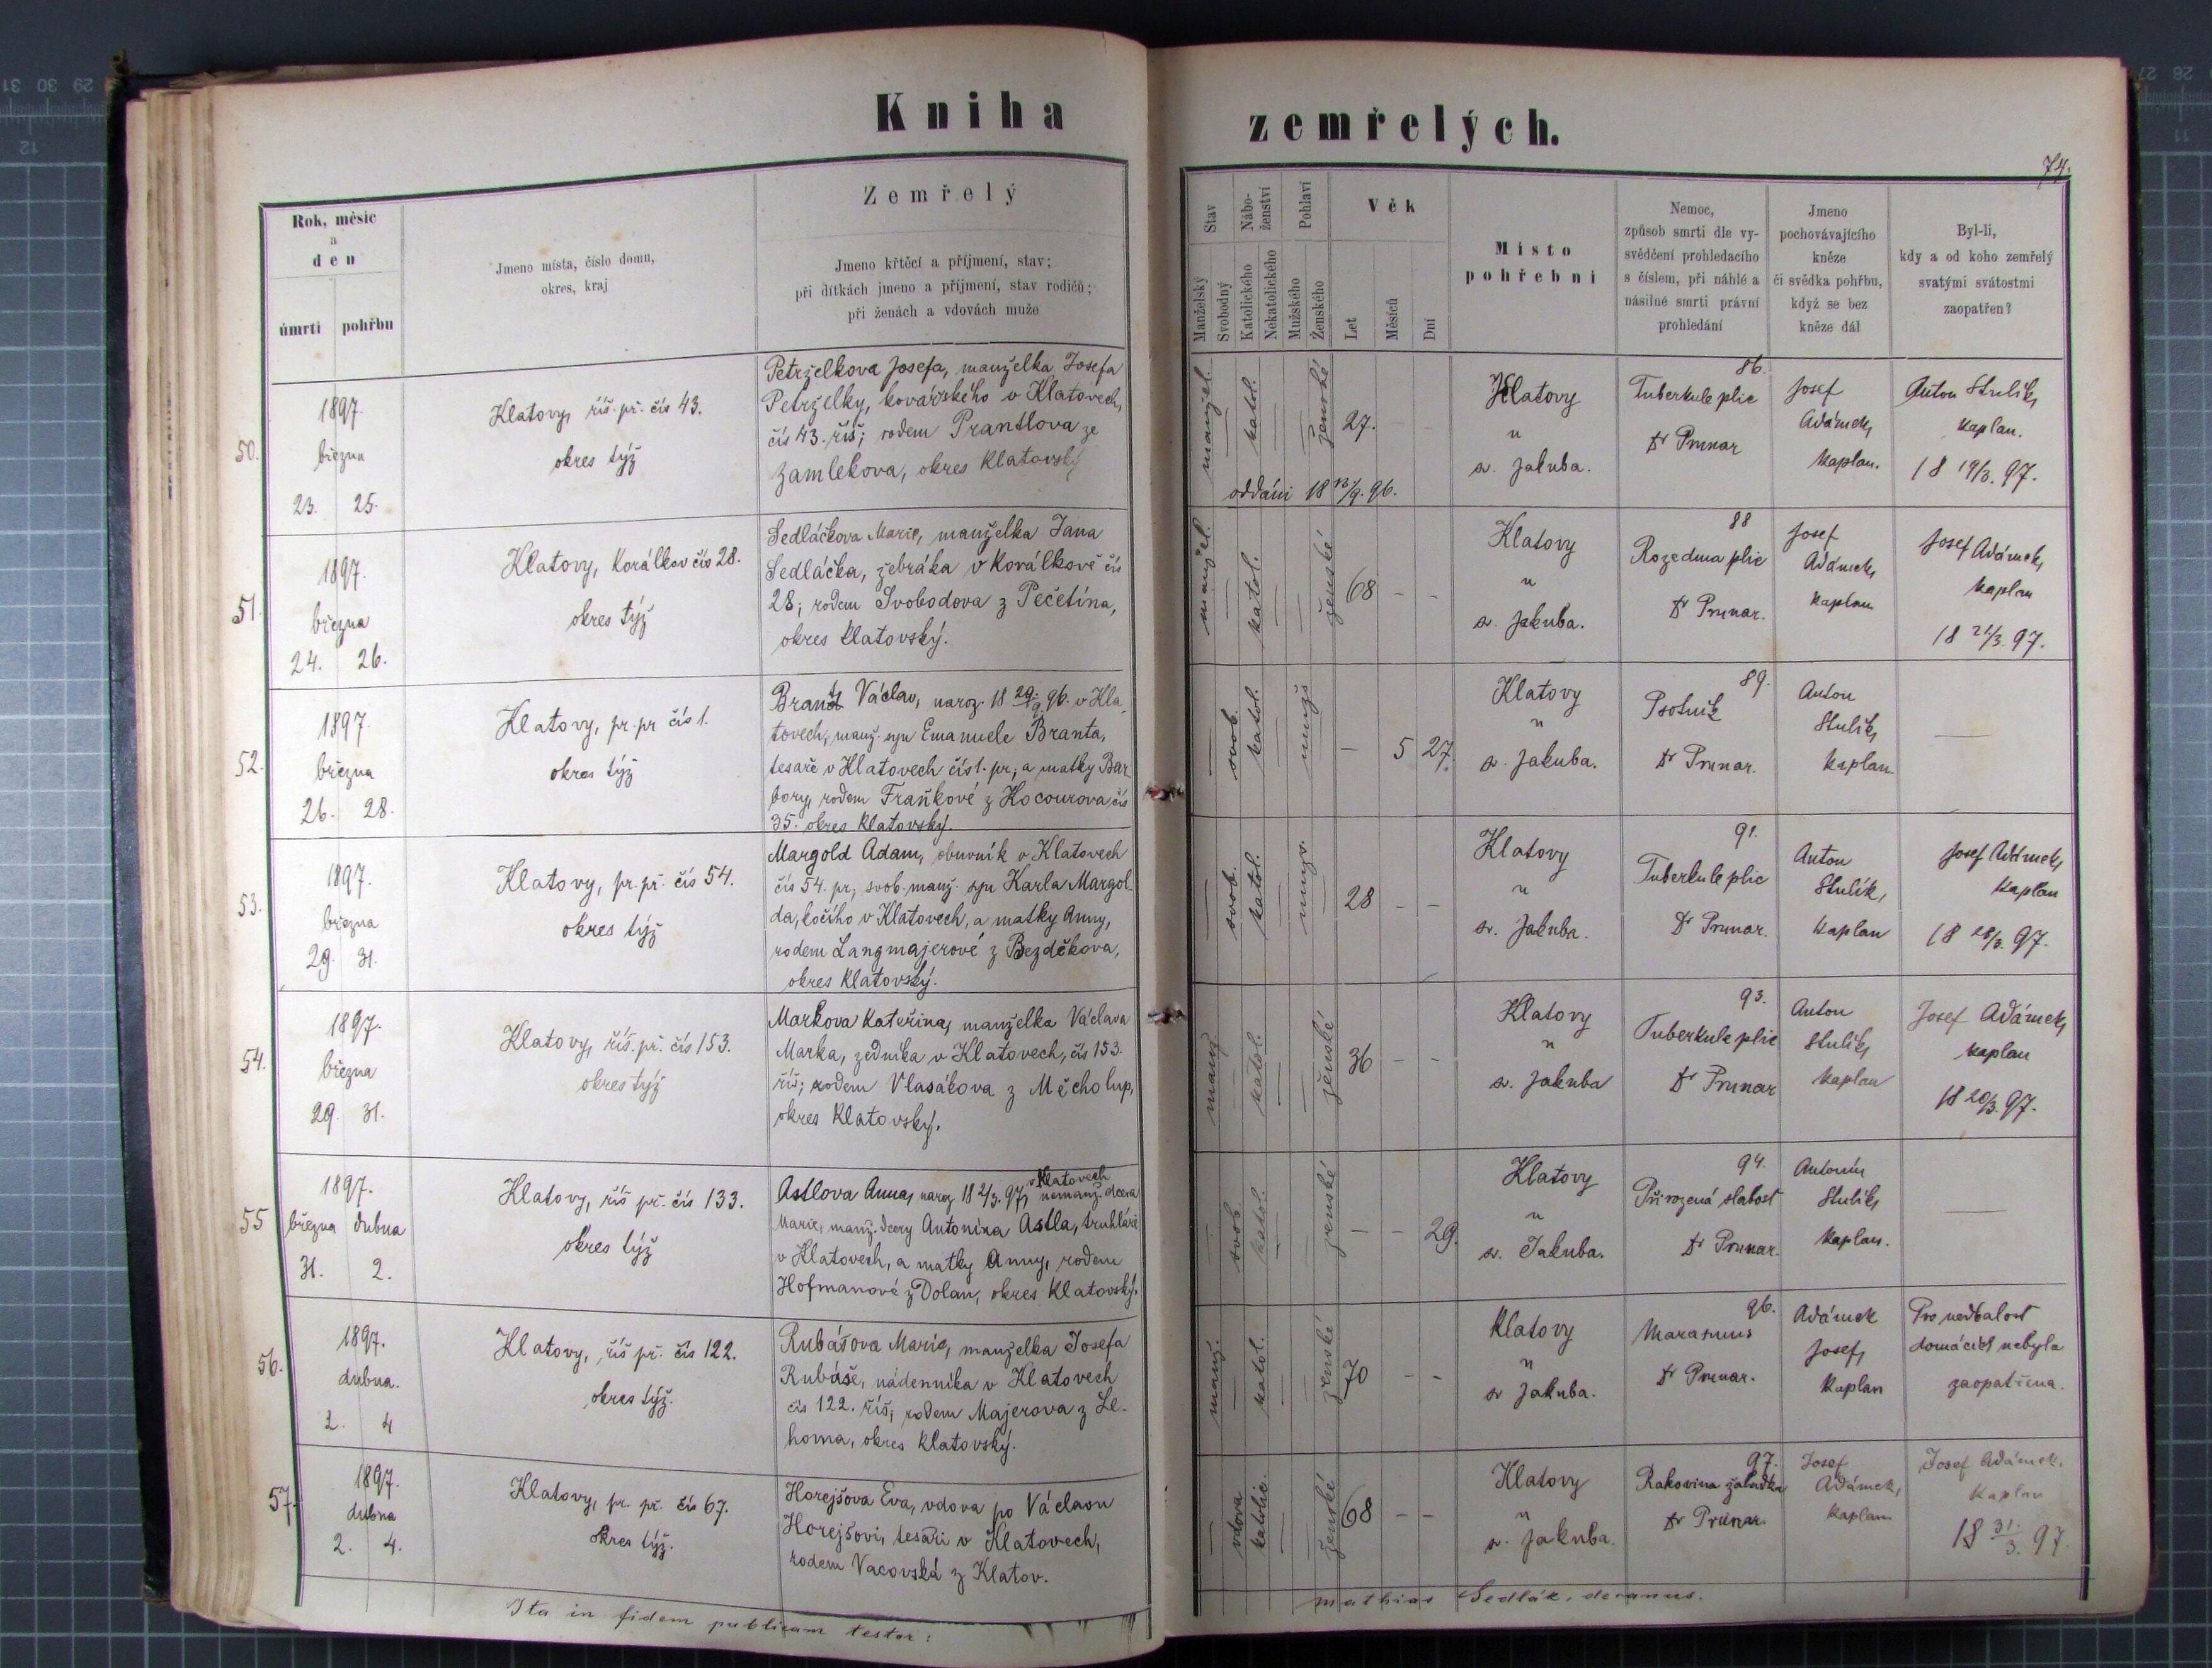 Kniha
zemřelých.
74.
Rok, měsíc
a
den
úmrtí
pohřbu
Jmeno místa, číslo domu,
okres, kraj
Zemřelý
Jmeno křtěcí a příjmení, stav;
při dítkách jmeno a příjmení, stav rodičů;
při ženách a vdovách muže
Stav
Manželský
Svobodný
Nábo-
ženství
Katolického
Nekatolického
Pohlaví
Mužského
Ženského
Věk
Let
Měsíců
Dní
Místo
pohřební
Nemoc,
způsob smrti dle vy-
svědčení prohledacího
s číslem, při náhlé a
násilné smrti právní
prohledání
Jmeno
pochovávajícího
kněze
či svědka pohřbu,
když se bez
kněze dál
Byl-li,
kdy a od koho zemřelý
svatými svátostmi
zaopatřen?
50.
1897.
března
23. 25.
Klatovy, říš. př. čís 43.
okres týž
Petrželkova Josefa, manželka Josefa
Petrželky, kovářského v Klatovech,
čís 43. říš; rodem Prantlova ze
Zamlekova, okres Klatovský
manžel.
katol.
ženské
27.
oddáni 18 13/9. 96.
Klatovy
u
sv. Jakuba.
86.
Tuberkule plic
Dr Prunar
Josef
Adámek,
kaplan.
Anton Stulík,
kaplan.
18 19/3. 97.
51.
1897.
března
24. 26.
Klatovy, Korálkov čís 28.
okres týž
Sedláčkova Marie, manželka Jana
Sedláčka, žebráka v Korálkově čís
28; rodem Svobodova z Pečetína,
okres klatovský.
manžel.
katol.
ženské
68 - -
Klatovy
u
sv. Jakuba.
88
Rozedma plic
Dr Prunar.
Josef
Adámek,
kaplan
Josef Adámek,
kaplan
18 21/3. 97.
52.
1897.
března
26. 28.
Klatovy, pr. př čís 1.
okres týž
Brant Václav, naroz. 18 29/9. 96. v Kla-
tovech, manž. syn Emanuele Branta,
tesaře v Klatovech čís 1. pr; a matky Bar
bory, rodem Fraňkové z Kocourova, čís
35. okres Klatovský.
svob.
katol.
mužs
- 5 27.
Klatovy
u
sv. Jakuba.
89.
Psotník
Dr Prunar.
Anton
Stulík,
kaplan.
53.
1897.
března
29. 31.
Klatovy, pr. př. čís 54.
okres týž
Margold Adam, obuvník v Klatovech
čís 54. pr; svob. manž. syn Karla Margol-
da, kočího v Klatovech, a matky Anny,
rodem Langmajerové z Bezděkova,
okres Klatovský.
svob.
katol.
mužs.
28 - -
Klatovy
u
sv. Jakuba.
91.
Tuberkule plic
Dr Prunar.
Anton
Stulík,
kaplan
Josef Adámek,
kaplan
18 28/3. 97.
54.
1897.
března
29. 31.
Klatovy, říš. př. čís 153.
okres týž
Markova Kateřina, manželka Václava
Marka, zedníka v Klatovech, čís 153.
říš; rodem Vlasákova z Měcholup,
okres Klatovský.
manž
katol.
ženské
36 - -
Klatovy
u
sv. Jakuba
93.
Tuberkule plic
Dr Prunar
Anton
Stulík,
kaplan
Josef Adámek,
kaplan
18 20/3. 97.
55
1897.
března dubna
31. 2.
Klatovy, říš př. čís 133.
okres týž
v Klatovech
Astlova Anna, naroz 18 2/3. 97, nemanž. dcera
Marie, manž. dcery Antonína Astla, truhláře
v Klatovech, a matky Anny, rodem
Hofmanové z Dolan, okres Klatovský.
svob.
katol.
ženské
- - 29.
Klatovy
u
sv. Jakuba.
94.
Přirozená slabost
Dr Prunar.
Antonín
Stulík,
kaplan.
56.
1897.
dubna.
2. 4
Klatovy, říš př. čís 122.
okres týž.
Rubášova Marie, manželka Josefa
Rubáše, nádenníka v Klatovech
čís 122. říš, rodem Majerova z Le-
homa, okres Klatovský.
manž.
katol.
ženské
70 - -
Klatovy
u
sv Jakuba.
96.
Marasmus
Dr Prunar.
Adámek
Josef,
kaplan
Pro nedbalost
domácích nebyla
zaopatřena.
57.
1897.
dubna
2. 4.
Klatovy, pr. př. čís 67.
okres týž.
Horejšova Eva, vdova po Václavu
Horejšovi, tesaři v Klatovech,
rodem Vacovská z Klatov.
vdova
katolic.
ženské
68 - -
Klatovy
u
sv. Jakuba.
97.
Rakovina žaludka
Dr Prunar.
Josef
Adámek,
kaplan
Josef Adámek,
kaplan
18 31./3. 97.
Ita in fidem publicam testor:
Mathias Sedlák, decanus.